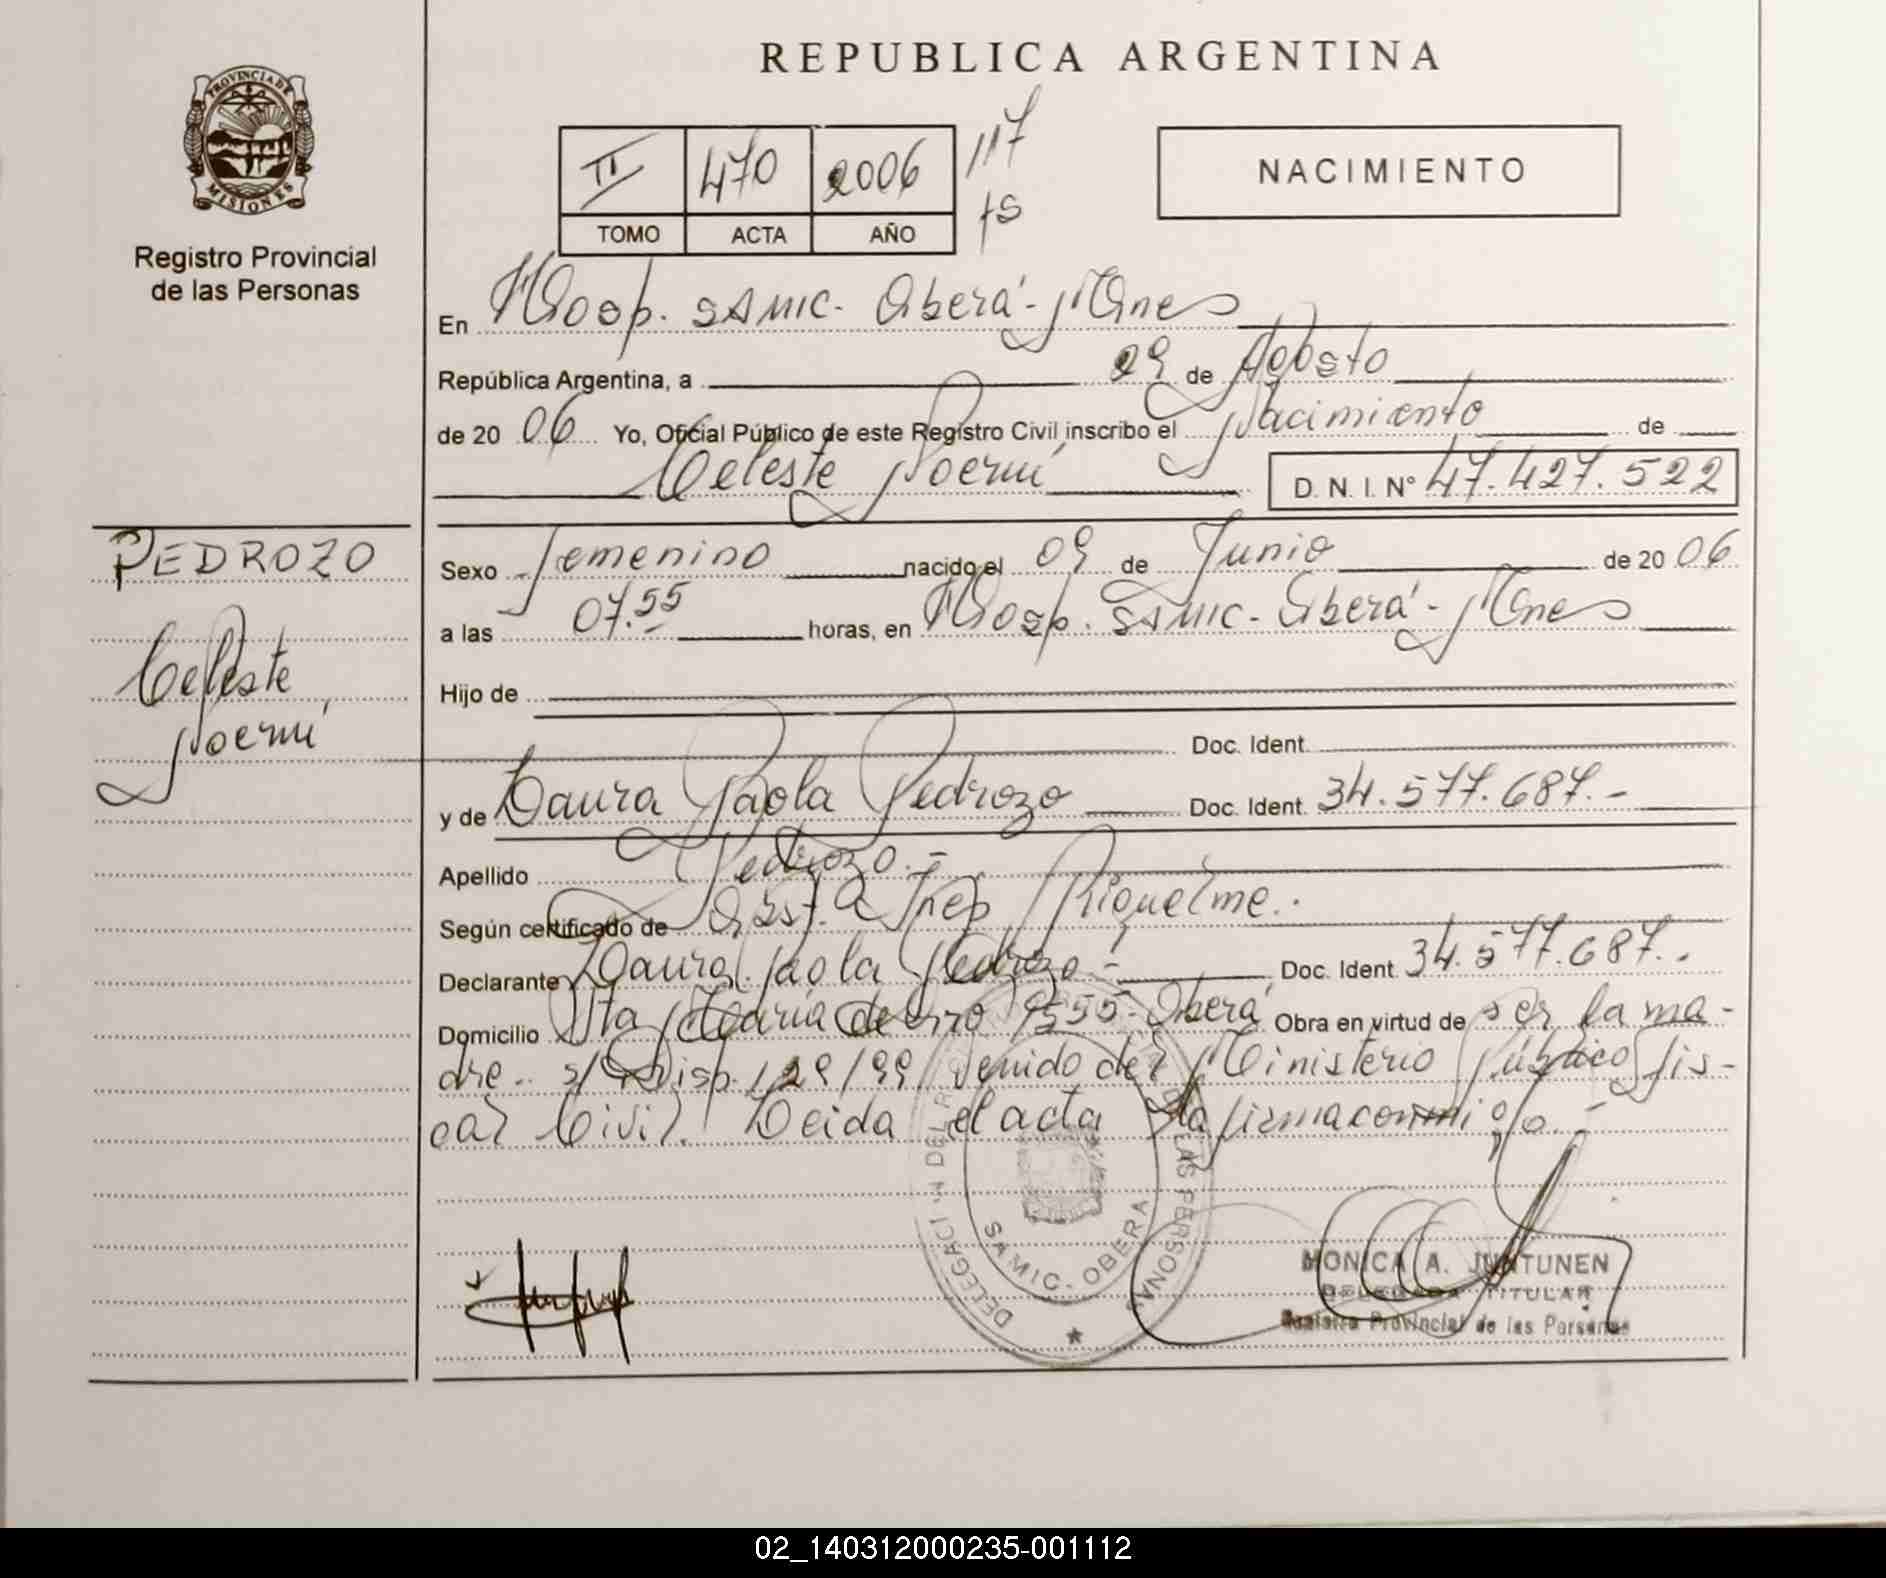 REPUBLICA ARGENTINA
PROVINCIA DE
MISIONES
Registro Provincial
de las Personas
II 470 2006 117
TOMO ACTA AÑO fs
NACIMIENTO
En Hosp. SAMIC. Oberá - Mnes
República Argentina, a 29 de Agosto
de 2006 Yo, Oficial Público de este Registro Civil inscribo el Nacimiento de
Celeste Noemí D. N. I. N° 47.427.522
PEDROZO
Celeste
Noemí
Sexo femenino nacido el 09 de Junio de 2006
a las 07.55 horas, en Hosp. SAMIC - Oberá - Mnes
Hijo de
Doc. Ident.
y de Laura Paola Pedrozo Doc. Ident. 34.577.687.-
Apellido Pedrozo.-
Según certificado de Obst. Inés Riquelme.-
Declarante Laura Paola Pedrozo - Doc. Ident. 34.577.687.-
Domicilio Sta María de 1555 - Oberá Obra en virtud de ser la ma-
dre.. s/ Disp. 129/99 venido del Ministerio Público Fis-
cal Civil. Leida el acta la firma conmigo.-
DELEGACI N DEL R LAS PERSONAS
SAMIC - OBERA
MONICA A. JUNTUNEN
DELEGADA TITULAR
Registro Provincial de las Personas
02_140312000235-001112